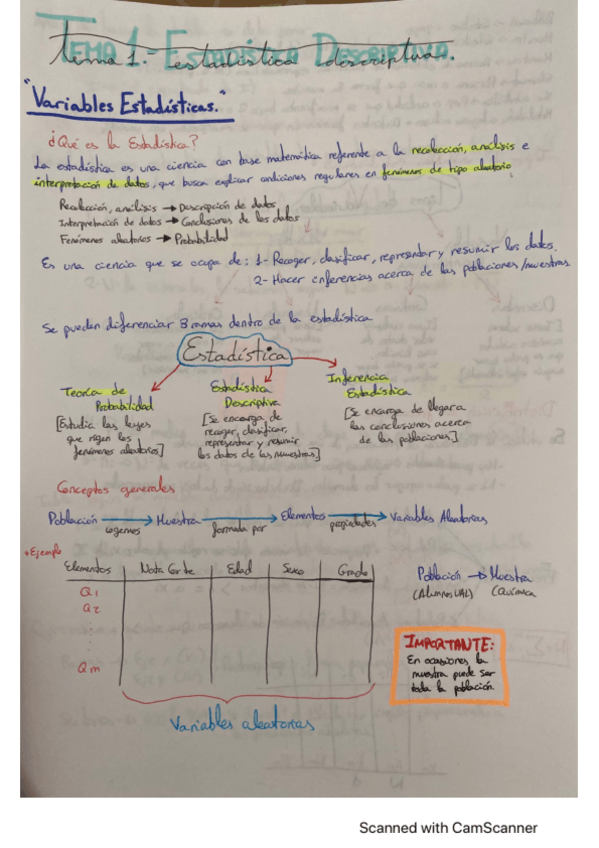 TEMA 1.- ESTADÍSTICA DESCRIPTIVA.
Tema 1.- estadística descriptiva.
"Variables Estadísticas."
¿Qué es la Estadística?
La estadística es una ciencia con base matemática referente a la recolección, análisis e
interpretación de datos, que busca explicar condiciones regulares en fenómenos de tipo aleatorio.
Recolección, análisis → Descripción de datos
Interpretación de datos → Conclusiones de los datos
Fenómenos aleatorios → Probabilidad
Es una ciencia que se ocupa de: 1- Recoger, clasificar, representar y resumir los datos.
2- Hacer inferencias acerca de las poblaciones/muestras
Se pueden diferenciar 3 ramas dentro de la estadística
Estadística
Teoría de
Probabilidad
[Estudia las leyes
que rigen los
fenómenos aleatorios]
Estadística
Descriptiva
[Se encarga de
recoger, clasificar,
representar y resumir
los datos de las muestras]
Inferencia
Estadística
[Se encarga de llegar a
las conclusiones acerca
de las poblaciones]
Conceptos generales
Población → Muestra → Elementos → Variables Aleatorias
cogemos formada por propiedades
• Ejemplo
Elementos Nota Corte Edad Sexo Grado
Q1
Q2
Qm
Variables aleatorias
Población → Muestra
(Alumnos UAL) (Química
IMPORTANTE:
En ocasiones la
muestra puede ser
toda la población.
Scanned with CamScanner